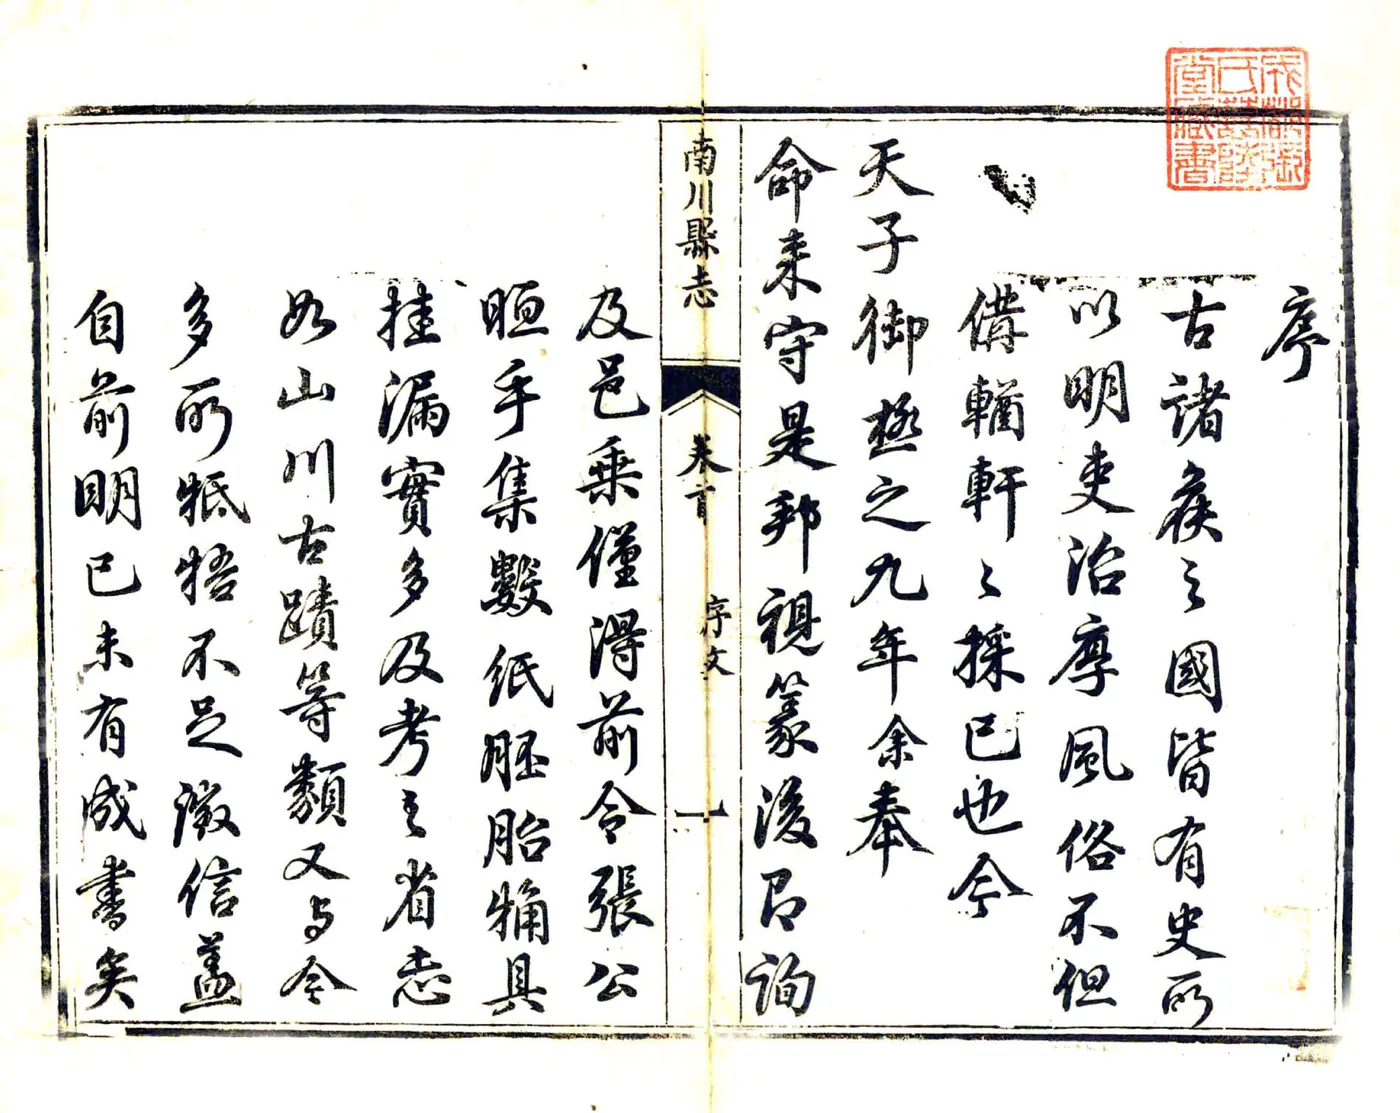 序
古諸侯之國皆有史所
以明吏治厚風俗不但
備輶軒之採已也今
天子御極之九年余奉
命来守是邦視篆後即詢
南川縣志
卷首
序文
一
及邑乗僅得前令張公
暅手集數紙胚胎粗具
挂漏實多及考之省志
如山川古蹟等類又与今
多所牴牾不足徵信蓋
自前明已未有成書矣